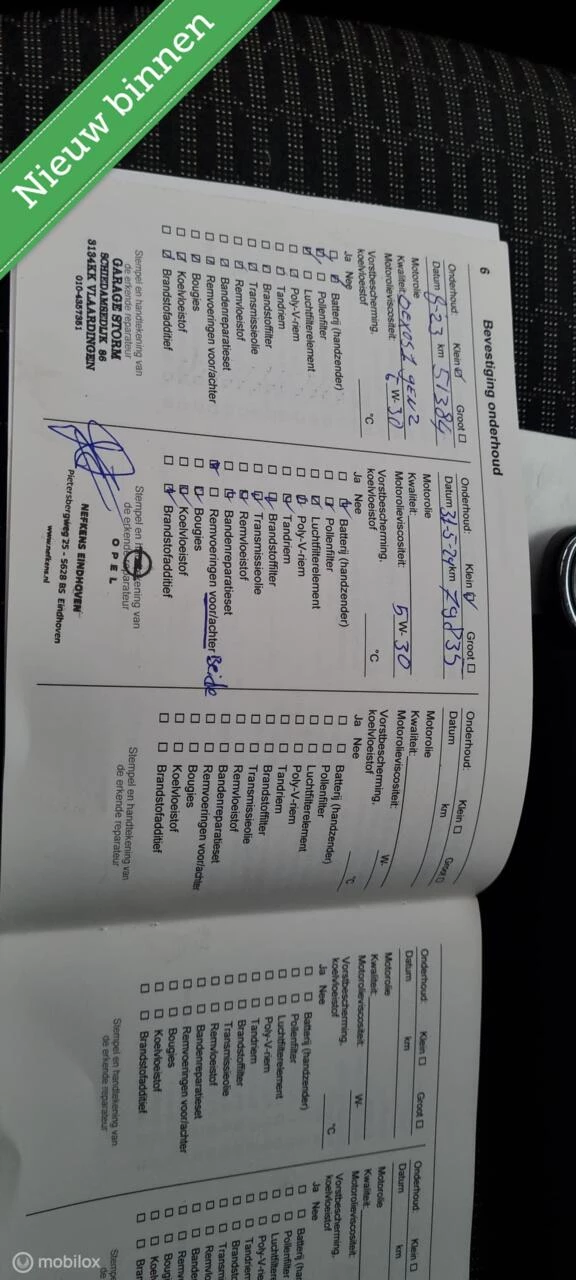 Nieuw binnen
6
Bevestiging onderhoud
Onderhoud: Klein ☑ Groot ☐
Datum 8-23 km 51384
Motorolie
Kwaliteit:
Motorolieviscositeit: W- 30
Vorstbescherming,
koelvloeistof °C
Ja Nee
Batterij (handzender)
Pollenfilter
Luchtfilterelement
Poly-V-riem
Tandriem
Brandstoffilter
Transmissieolie
Remvloeistof
Bandenreparatieset
Remvoeringen voor/achter
Bougies
Koelvloeistof
Brandstofadditief
Stempel en handtekening van
de erkende reparateur
GARAGE STORM
SCHIEDAMSEDIJK 86
3134KK VLAARDINGEN
010-4357381
Onderhoud: Klein ☑ Groot ☐
Datum 31-5-24 km 79835
Motorolie
Kwaliteit:
Motorolieviscositeit: 5 W- 30
Vorstbescherming,
koelvloeistof °C
Ja Nee
Batterij (handzender)
Pollenfilter
Luchtfilterelement
Poly-V-riem
Tandriem
Brandstoffilter
Transmissieolie
Remvloeistof
Bandenreparatieset
Remvoeringen voor/achter Beide
Bougies
Koelvloeistof
Brandstofadditief
Stempel en handtekening van
de erkende reparateur
OPEL
NEFKENS EINDHOVEN
Pietersbergweg 25 - 5628 BS Eindhoven
www.nefkens.nl
Onderhoud: Klein ☐ Groot ☐
Datum km
Motorolie
Kwaliteit:
Motorolieviscositeit: W-
Vorstbescherming,
koelvloeistof °C
Ja Nee
Batterij (handzender)
Pollenfilter
Luchtfilterelement
Poly-V-riem
Tandriem
Brandstoffilter
Transmissieolie
Remvloeistof
Bandenreparatieset
Remvoeringen voor/achter
Bougies
Koelvloeistof
Brandstofadditief
Stempel en handtekening van
de erkende reparateur
Onderhoud: Klein ☐ Groot ☐
Datum km
Motorolie
Kwaliteit:
Motorolieviscositeit: W-
Vorstbescherming,
koelvloeistof °C
Ja Nee
Batterij (handzender)
Pollenfilter
Luchtfilterelement
Poly-V-riem
Tandriem
Brandstoffilter
Transmissieolie
Remvloeistof
Bandenreparatieset
Remvoeringen voor/achter
Bougies
Koelvloeistof
Brandstofadditief
Stempel en handtekening van
de erkende reparateur
Onderhoud: Klein ☐
Datum km
Motorolie
Kwaliteit:
Motorolieviscositeit:
Vorstbescherming,
koelvloeistof
Ja Nee
Batterij (h
Pollenfilter
Luchtfiltere
Poly-V-riem
Tandriem
Brandsto
Transmis
Remvloe
Bandenr
Remvo
Bougi
Koelv
Bran
Stemp
de
mobilox